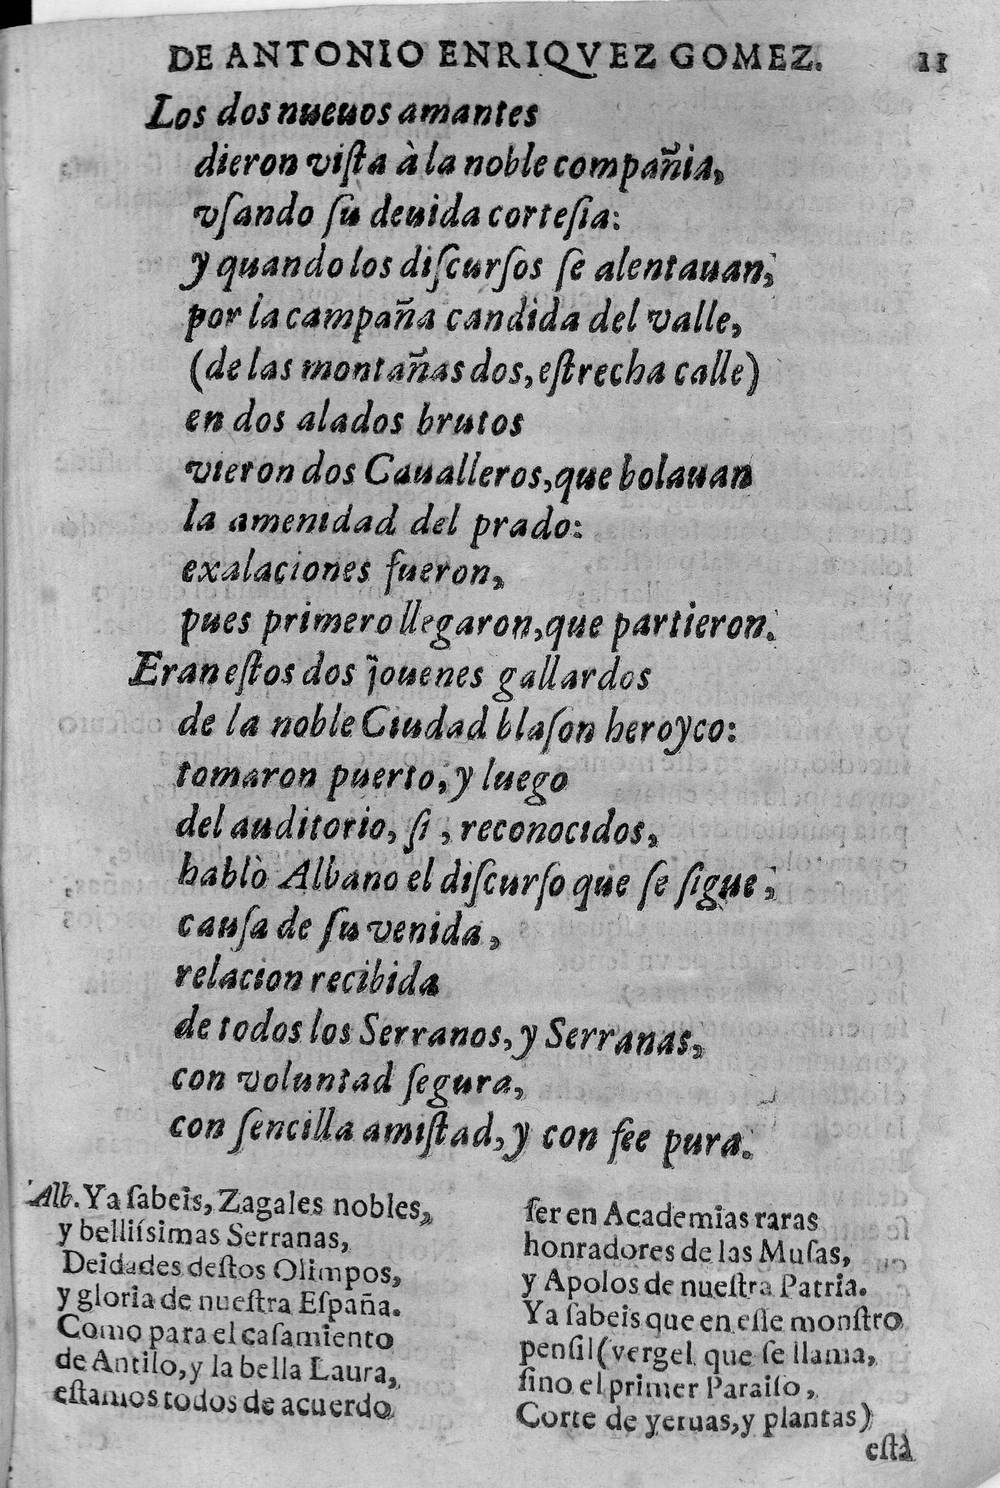 DE ANTONIO ENRIQVEZ GOMEZ. 11
Los dos nueuos amantes
dieron viſta à la noble compañia,
vſando ſu deuida corteſia:
y quando los diſcurſos ſe alentauan,
por la campaña candida del valle,
(de las montañas dos, eſtrecha calle)
en dos alados brutos
vieron dos Caualleros, que bolauan
la amenidad del prado:
exalaciones fueron,
pues primero llegaron, que partieron.
Eran eſtos dos jouenes gallardos
de la noble Ciudad blaſon heroyco:
tomaron puerto, y luego
del auditorio, ſi, reconocidos,
hablò Albano el diſcurſo que ſe ſigue,
cauſa de ſu venida,
relacion recibida
de todos los Serranos, y Serranas,
con voluntad ſegura,
con ſencilla amiſtad, y con fee pura.
Alb. Ya ſabeis, Zagales nobles,
y belliſsimas Serranas,
Deidades deſtos Olimpos,
y gloria de nueſtra Eſpaña.
Como para el caſamiento
de Antilo, y la bella Laura,
eſtamos todos de acuerdo
ſer en Academias raras
honradores de las Muſas,
y Apolos de nueſtra Patria.
Ya ſabeis que en eſſe monſtro
penſil (vergel que ſe llama,
ſino el primer Paraiſo,
Corte de yeruas, y plantas)
eſtà